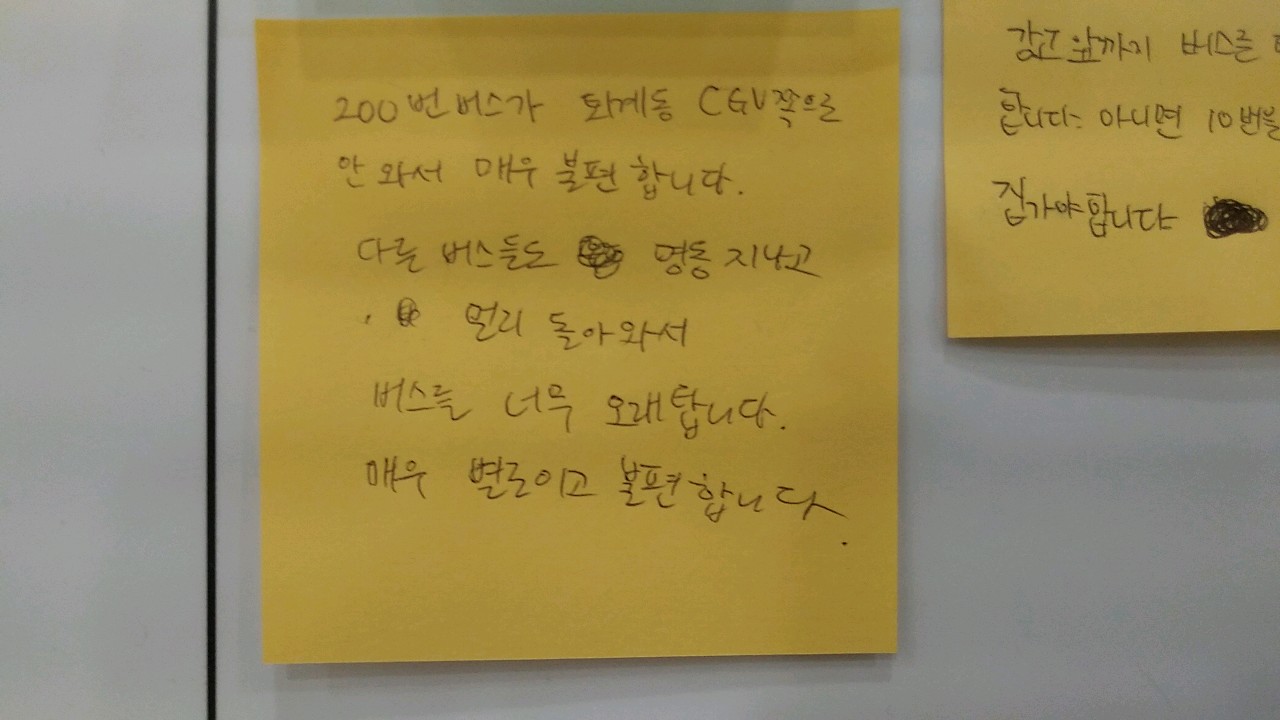 200번버스가 퇴계동 CGV쪽으로
안 와서 매우 불편합니다.
다른 버스들도 명동 지나고
멀리 돌아와서
버스를 너무 오래탑니다.
매우 별로이고 불편합니다.
강고 앞까지 버스를
합니다. 아니면 10번을
집가야합니다